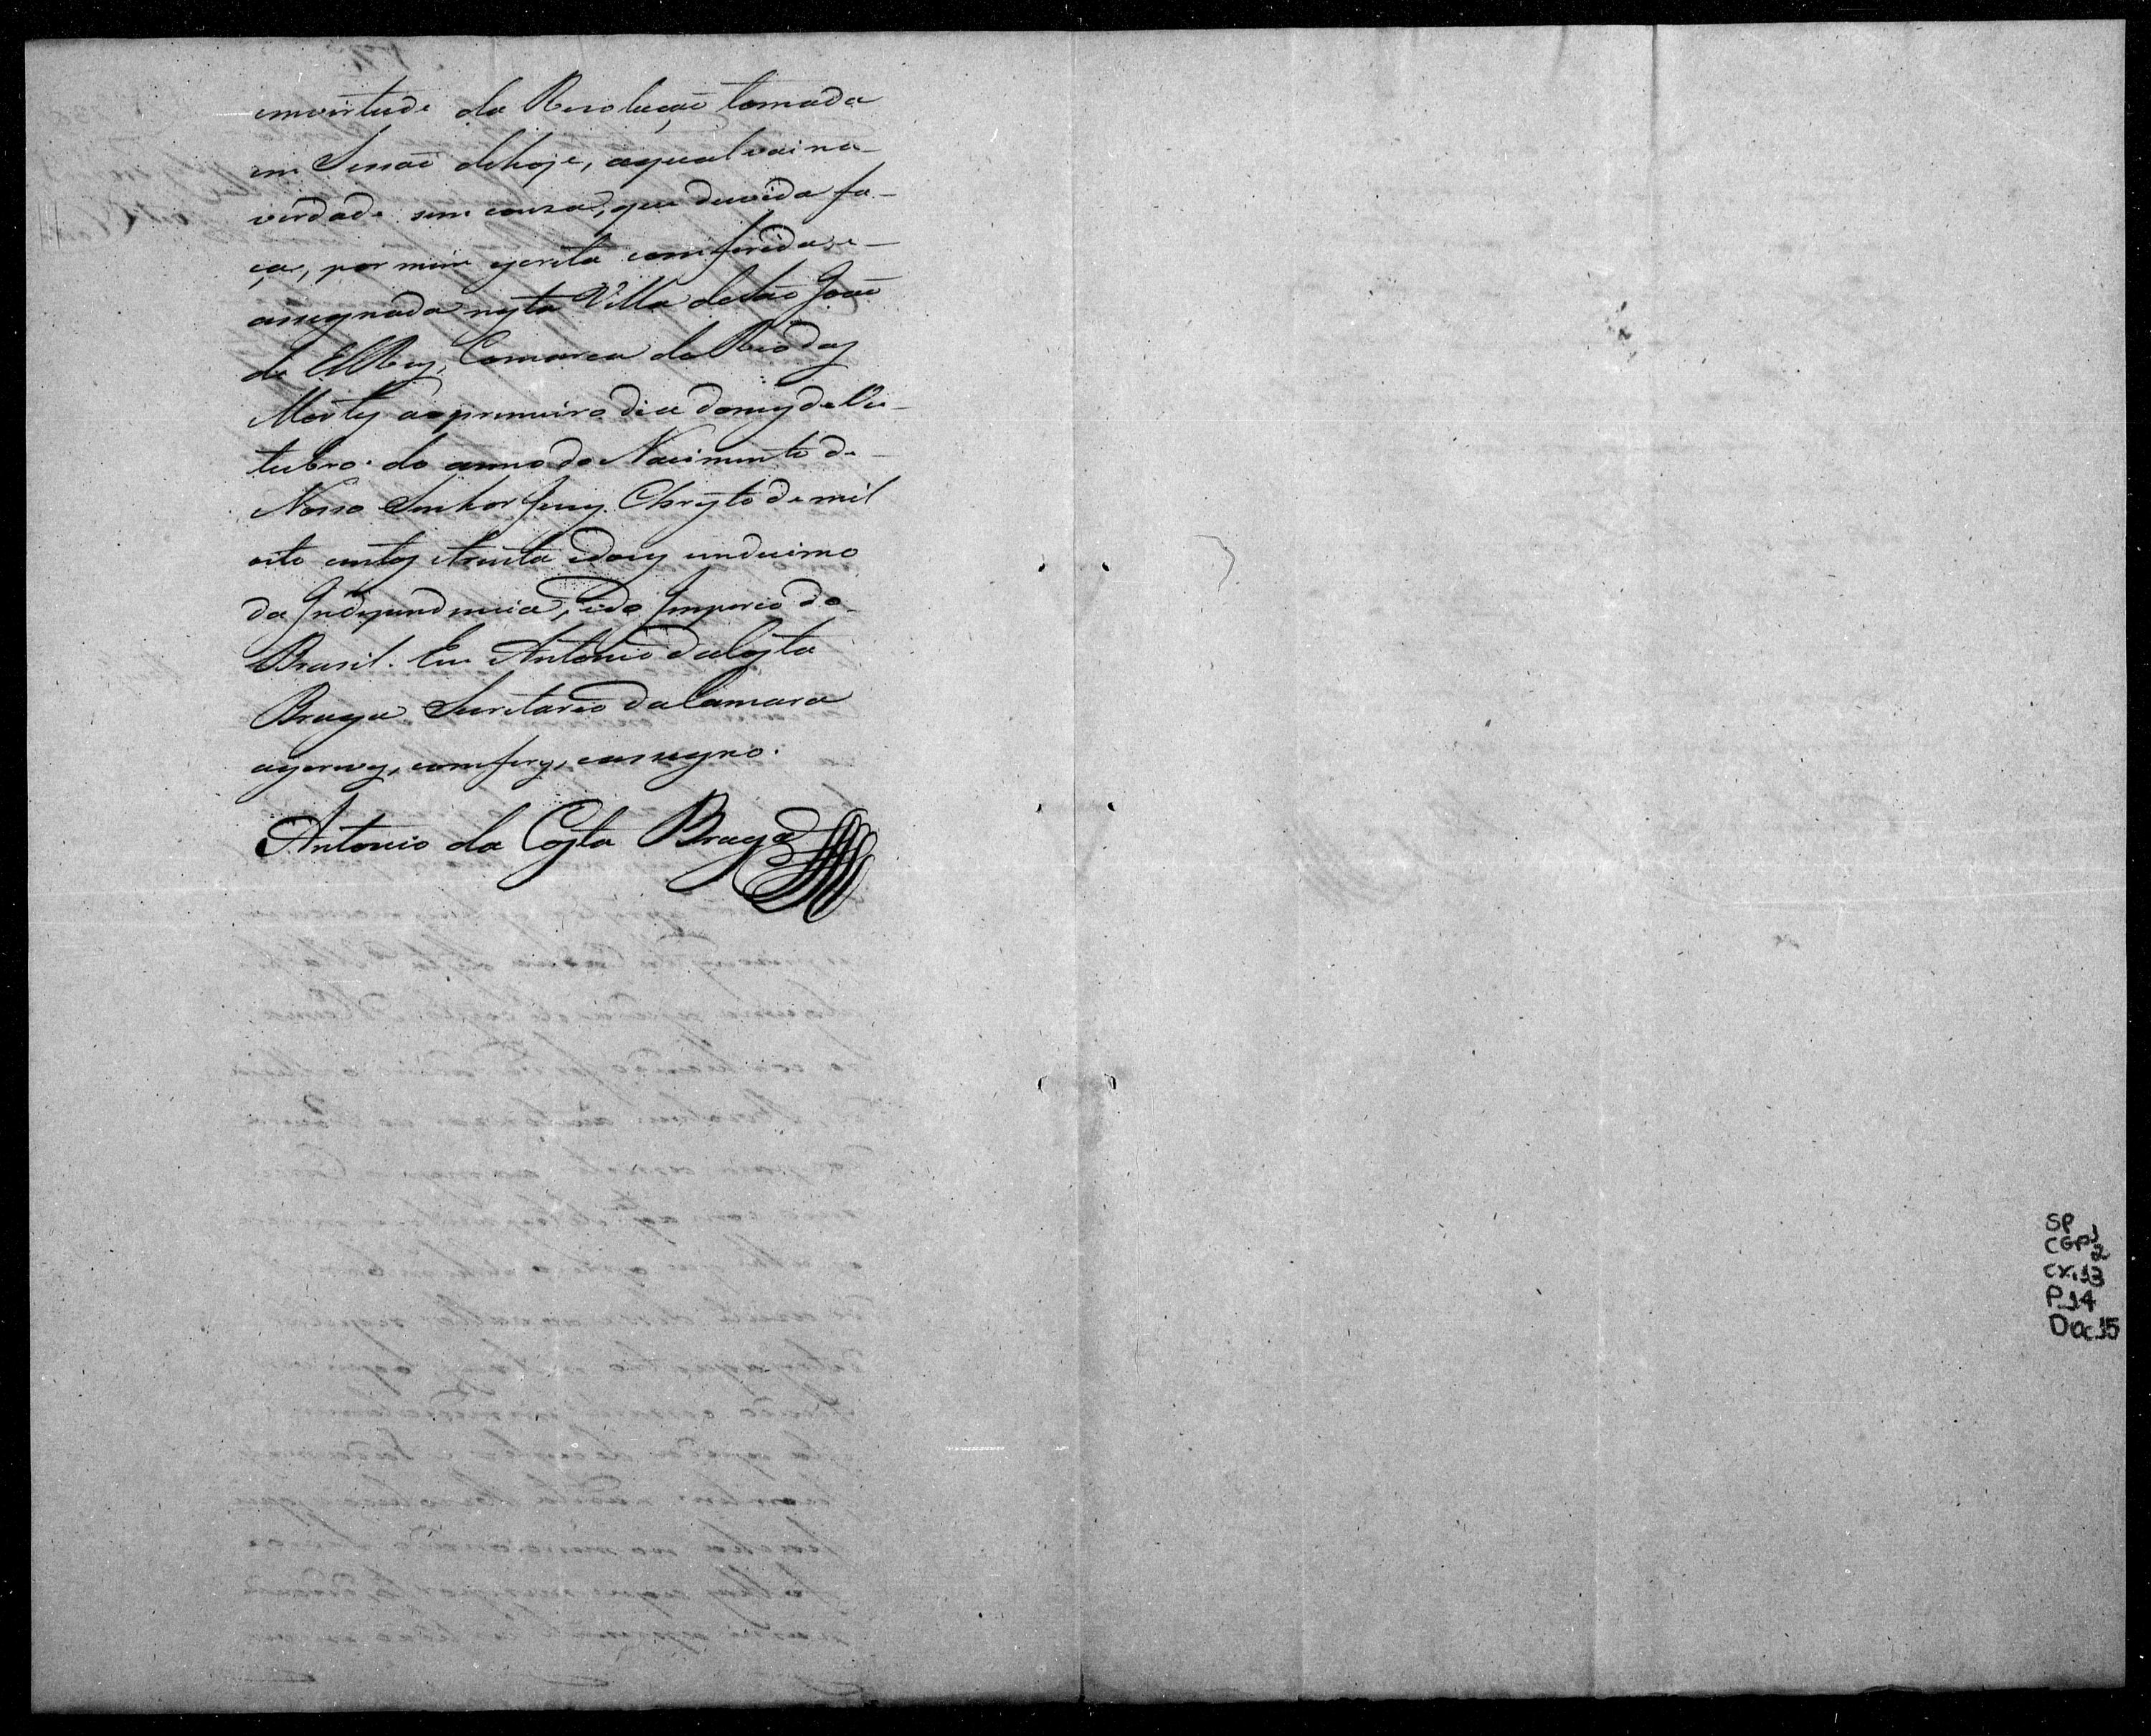 emvirtude da Resolução tomada
em Sessaõ dehoje, aqual vai na
verdade sem couza, que duvida fa-
ça, por mim escrita comferida, e
assegnada nesta Villa deSão Joaõ
de ElRey, Comarca do Rio das
Mortes aoprimeiro dia domez de Ou-
tubro do anno do Nacimento de
Nosso Senhor Jesus Christo de mil
oito centos etrinta edous undecimo
da Independencia, edo Imperio do
Brasil. Eu Antonio daCosta
Braga Secretario daCamara
aescrevy, comfery, eassegno.
Antonio da Costa Braga
SP
CGP1
2
CX.13
P.14
Doc15